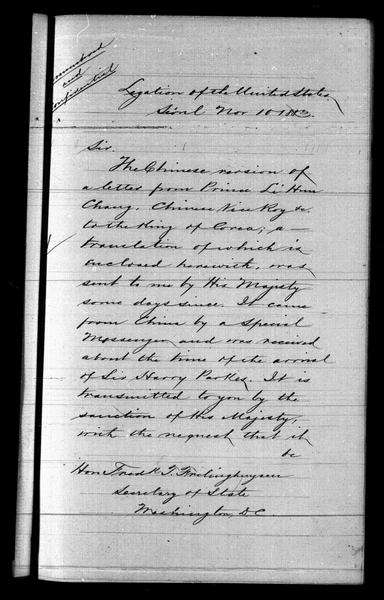 and
Confidential
Legation of the United States
Séoul Nov 10 1883.
Sir.
The Chinese version of
a letter from Prince Li Hun
Chang, Chinese Vice Roy &c.
to the King of Corea; a
translation of which is
enclosed herewith, was
sent to me by His Majesty
some days since. It came
from China by a special
Messenger and was received
about the time of the arrival
of Sir Harry Parkes. It is
transmitted to you by the
sanction of His Majesty,
with the request that it
be
Hon Fred K T. Frelinghuysen
Secretary of State
Washington, D.C.